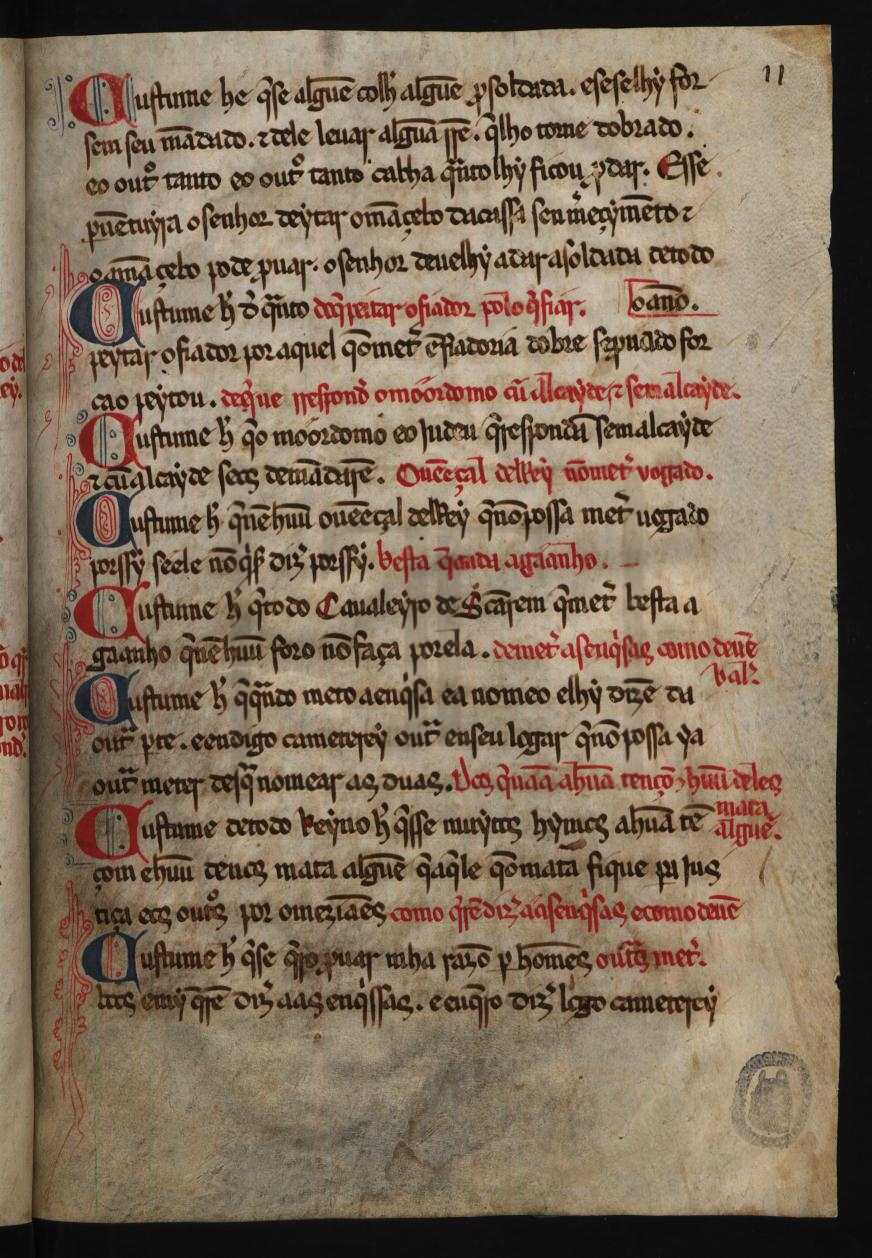 11
Custume he q̃se algũe colh̃ algũe p̱ soldada. eseselhy for
sem seu mãdado. ⁊ dele leuar algũa rrẽ. q̃lho torne dobrado.
eo outº tanto eo outº tanto calha q̃ntolhy ficou p̱ dar. Esse
p̱uẽtuyra o senhor deytar o mãçebo da cassa sen mẽeçymẽto ⁊
o mãçebo pode p̱uar. o senhor deuelhy a dar a soldada de todo
o ano.
Custume h̃ do q̃nto doq̃ peitar o fiador polo q̃ fiar.
peytar o fiador por aquel q̃o met̃ ẽ fiadoria dobre se p̱uado for
cao peytou. deq̃ue rresspond̃ o moordomo cũ alcayde ⁊ sem alcayde.
Custume h̃ q̃o moordomo eo Judeu q̃ respondã sem alcayde
⁊ cũ alcayde seos demãdarẽ. Ouẽeçal del Rey nõ met̃ uogado.
Custume h̃ q̃ nẽhuũ ouẽeçal del Rey q̃ nõ possa met̃ uogado
porssy seele nõ q̃s̃ diz̃ porssy. besta q̃ anda a gaanho.
Custume h̃ q̃ todo Caualeyro de Scãrem q̃ met̃ besta a
gaanho q̃ nẽhuũ foro nõ faça por ela. demet̃ as enq̃sas como deuẽ
ual̃.
Custume h̃ q̃ q̃ndo meto a enq̃sa ea nomeo elhy dizẽ da
out̃ p̱te. eendigo cameterey out̃ en seu logar q̃ nõ possa ya
out̃ meter desq̃ nomear as duas. Dos q̃ uãa ahũa tençõ ⁊ huũ deles
mata
algũe.
Custume de todo Reyno h̃ q̃sse muytos hymos ahũa tẽ
çom ehuũ de nos mata algũe q̃ aq̃le q̃o mata fique p̱a Jus
tiça eos outºs por omeziãaes como q̃rẽ diz̃ aas enq̃ssas ecomo deuẽ
Custume h̃ q̃se q̃ro p̱uar mha razõ p̱ homẽes outºs met̃.
 emỹ q̃rẽ diz̃ aas enq̃ssas. e eu q̃ro diz̃ logo cameterey